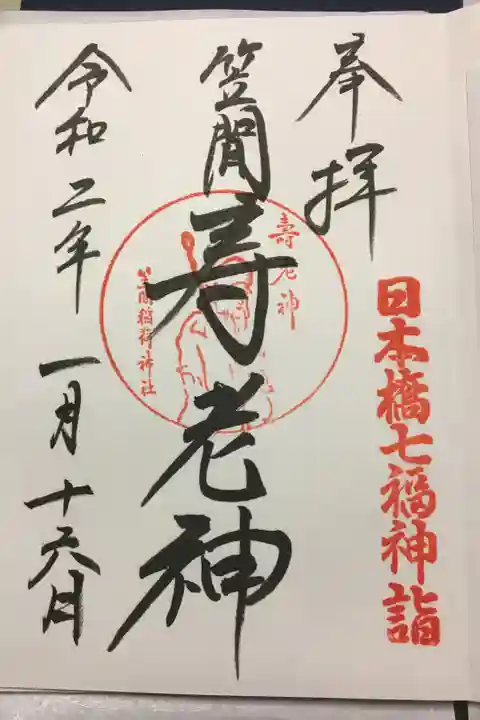 奉拝
日本橋七福神詣
笠間
寿老神
壽老神
笠間稲荷神社
令和二年一月十六日